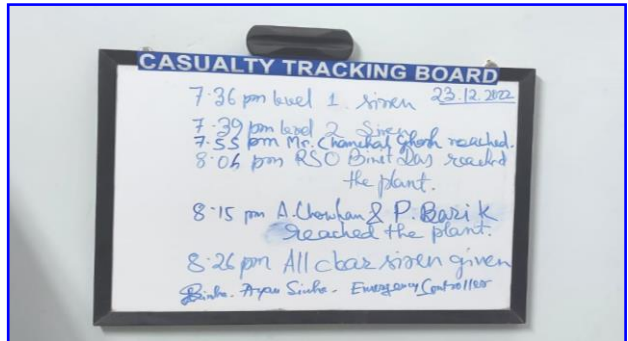 CASUALTY TRACKING BOARD
7.36 pm level 1 siren 23.12.2022
7.39 pm level 2 Siren
7.55 pm Mr. Chanchal Ghosh reached.
8.06 pm RSO Binet Das reached
the plant.
8.15 pm A. Chowhan & P. Barik
reached the plant.
8.26 pm All clear siren given
Ayan Sinha - Emergency Controller